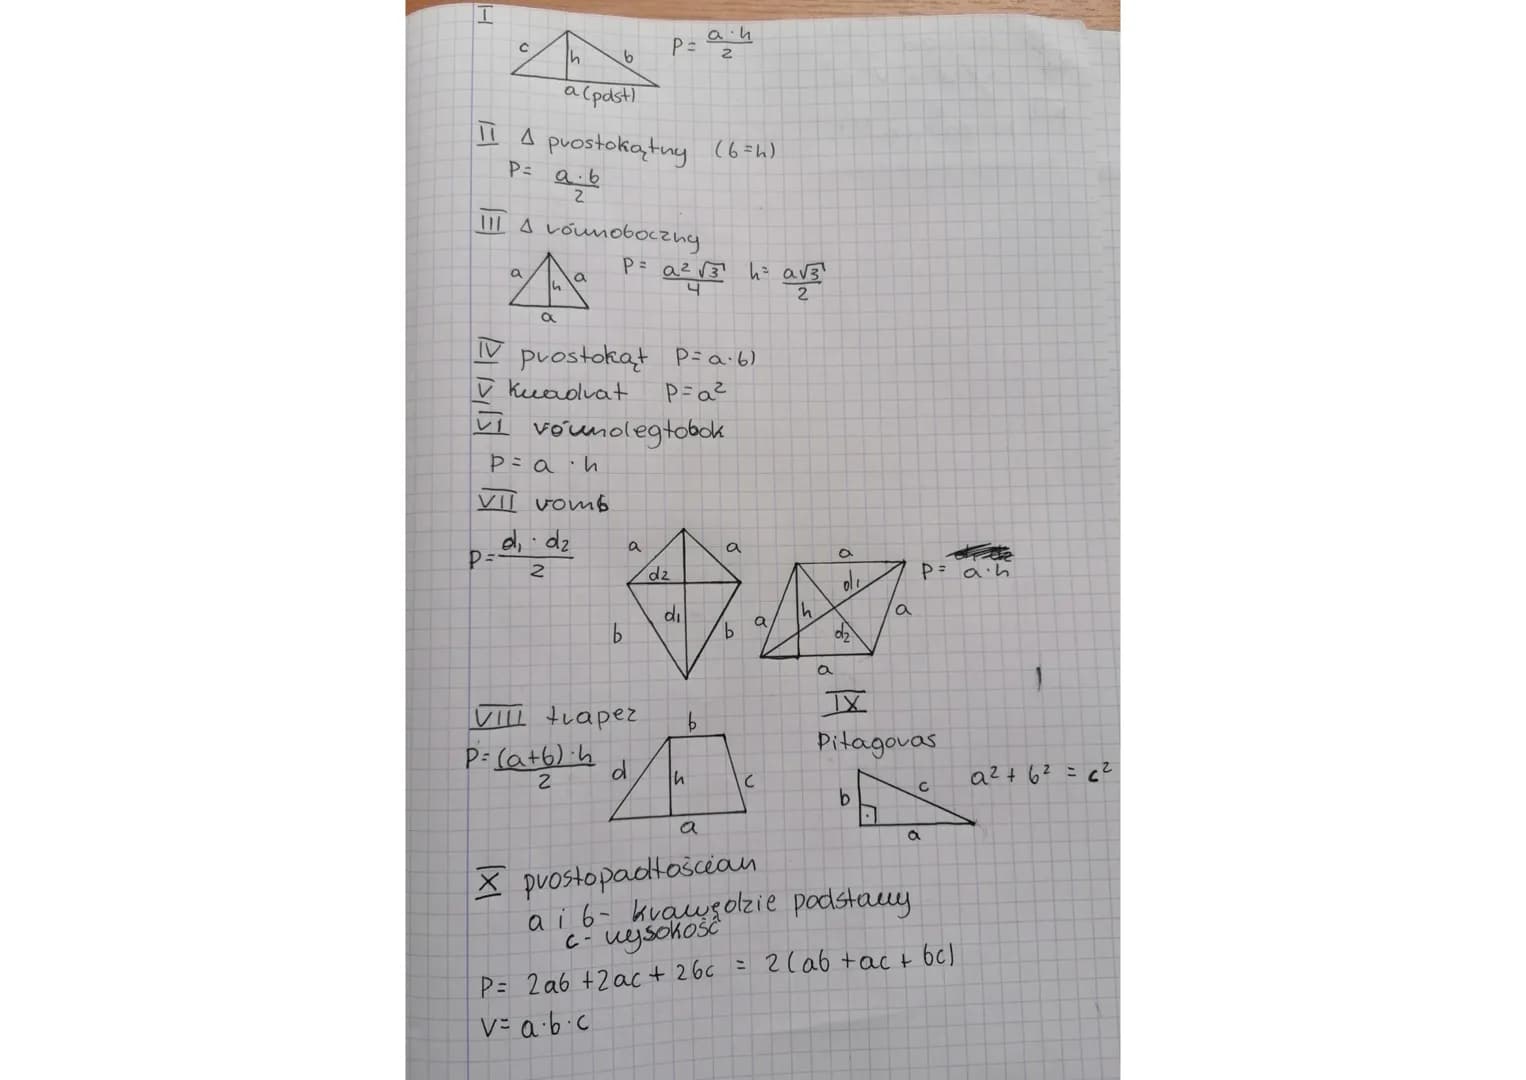 I
c h b
a (pdst)
P = a · h / 2
II Δ prostokątny (b=h)
P = a · b / 2
III Δ równoboczny
a h a
a
P = a² √3 / 4 h = a√3 / 2
IV prostokąt P = a · b)
V kwadrat P = a²
VI równoległobok
P = a · h
VII romb
P = d₁ · d₂ / 2
a a
d₂
d₁
b b
a
d₁
a h a
d₂
a
P = a · h
VIII trapez
P = (a+b) · h / 2
b
d h c
a
IX
Pitagoras
b c
a
a² + b² = c²
X prostopadłościan
a i b - krawędzie podstawy
c - wysokość
P = 2ab + 2ac + 2bc = 2(ab + ac + bc)
V = a · b · c